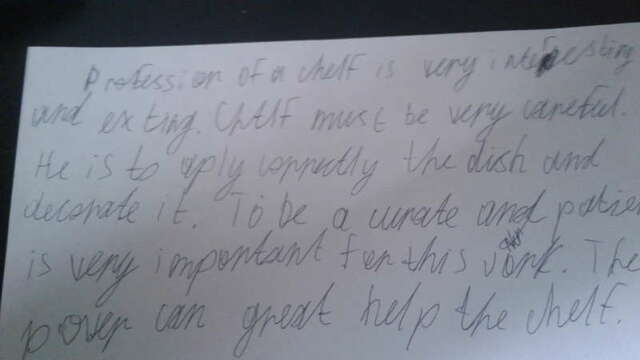 Profession of a chelf is very interesting
and exting. Chelf must be very careful.
He is to aply correctly the dish and
decorate it. To be a curate and patien
is very important for this work. The
pover can great help the chelf.